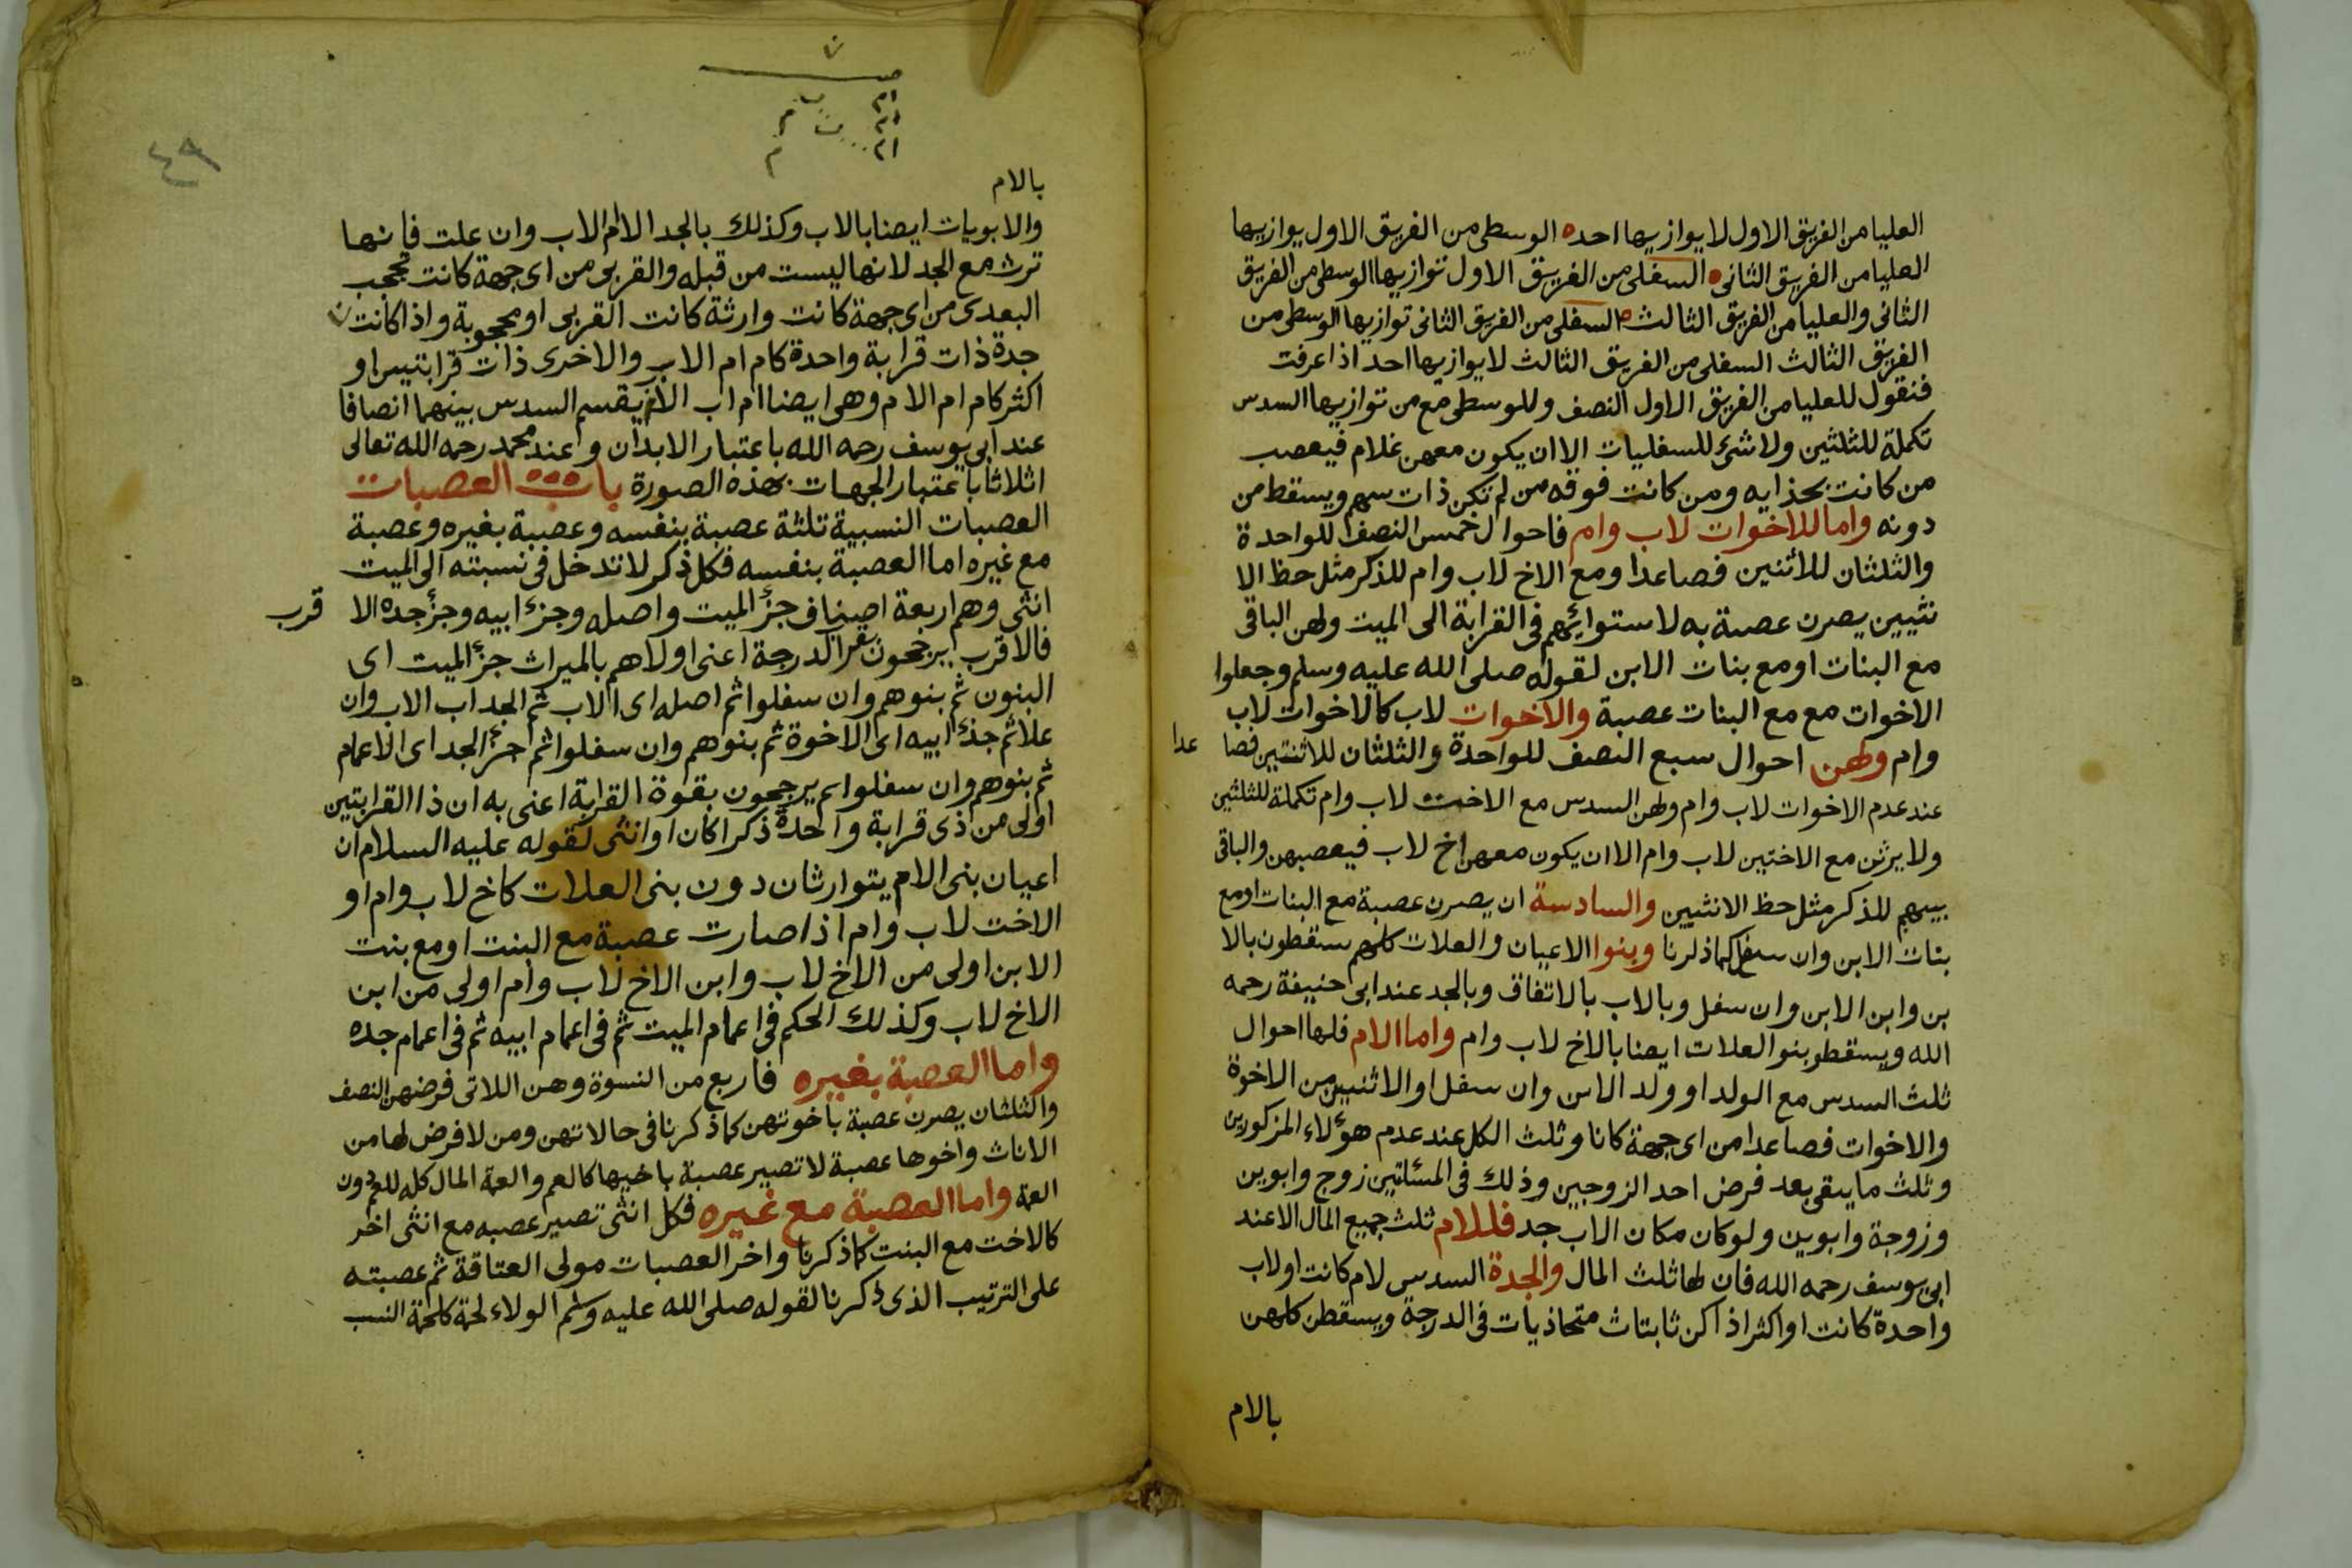 العليا من الفريق الاول لا يوازيها احد ه الوسطى من الفريق الاول يوازيها
العليا من الفريق الثانى ه السفلى من الفريق الاول توازيها الوسطى من الفريق
الثانى والعليا من الفريق الثالث ه السفلى من الفريق الثانى توازيها الوسطى من
الفريق الثالث السفلى من الفريق الثالث لا يوازيها احد اذا عرفت
فنقول للعليا من الفريق الاول النصف وللوسطى مع من توازيها السدس
تكملة للثلثين ولا شئ للسفليات الا ان يكون معهن غلام فيعصب
من كانت بحذايه ومن كانت فوقه من لم تكن ذات سهم ويسقط من
دونه واما للاخوات لاب وام فاحوال خمس النصف للواحدة
والثلثان للأثنين فصاعدا ومع الاخ لاب وام للذكر مثل حظ الا
نثيين يصرن عصبة به لاستوائهم فى القرابة الى الميت ولهن الباقى
مع البنات او مع بنات الابن لقوله صلى الله عليه وسلم وجعلوا
الاخوات مع مع البنات عصبة والاخوات لاب كالاخوات لاب
وام ولهن احوال سبع النصف للواحدة والثلثان للاثنتين فصا عدا
عند عدم الاخوات لاب وام ولهن السدس مع الاخت لاب وام تكملة للثلثين
ولا يرثن مع الاختين لاب وام الا ان يكون معهن اخ لاب فيعصبهن والباقى
بينهم للذكر مثل حظ الانثيين والسادسة ان يصرن عصبة مع البنات او مع
بنات الابن وان سفل كما ذكرنا وبنوا الاعيان والعلات كلهم سقطون بالا
بن وابن الابن وان سفل وبالاب بالاتفاق وبالجد عند ابى حنيفة رحمه
الله ويسقط بنو العلات ايضا بالاخ لاب وام واما الام فلها احوال
ثلث السدس مع الولد او ولد الابن وان سفل او الاثنين من الاخوة
والاخوات فصاعدا من اى جهة كانا وثلث الكل عند عدم هؤلاء المذكورين
وثلث ما يبقى بعد فرض احد الزوجين وذلك فى المسئلتين زوج وابوين
وزوجة وابوين ولو كان مكان الاب جد فللام ثلث جميع المال الا عند
ابى يوسف رحمه الله فان لها ثلث المال والجدة السدس لام كانت او لاب
واحدة كانت او اكثر اذا كن ثابتات متحاذيات فى الدرجة ويسقطن كلهن
بالام
٤٩
ام
ام
ام
بالام
والابويات ايضا بالاب وكذلك بالجد الا ام الاب وان علت فانها
ترث مع الجد لانها ليست من قبله والقربى من اى جهة كانت تحجب
البعدى من اى جهة كانت وارثة كانت القربى او محجوبة واذا كانت
جدة ذات قرابة واحدة كام ام الاب والاخرى ذات قرابتيس او
اكثر كام ام الام وهى ايضا ام اب الاب يقسم السدس بينهما انصافا
عند ابى يوسف رحمه الله باعتبار الابدان وعند محمد رحمه الله تعالى
اثلاثا باعتبار الجهات بهذه الصورة باب العصبات
العصبات النسبية تلثة عصبة بنفسه وعصبة بغيره وعصبة
مع غيره اما العصبة بنفسه فكل ذكر لا تدخل فى نسبته الى الميت
انثى وهم اربعة اصناف جزأ الميت واصله وجزأ ابيه وجزأ جده الا قرب
فالاقرب يرجحون بقرب الدرجة اعنى اولاهم بالميراث جزأ الميت اى
البنون ثم بنوهم وان سفلوا ثم اصله اى الاب ثم الجد اب الاب وان
علا ثم جذأ ابيه اى الاخوة ثم بنوهم وان سفلوا ثم جزأ الجد اى الاعمام
ثم بنوهم وان سفلوا ثم يرجحون بقوة القرابة اعنى به ان ذا القرابتين
اولى من ذى قرابة واحدة ذكرا كان او انثى لقوله عليه السلام ان
اعيان بنى الام يتوارثان دون بنى العلات كاخ لاب وام او
الاخت لاب وام اذا صارت عصبة مع البنت او مع بنت
الابن اولى من الاخ لاب وابن الاخ لاب وام اولى من ابن
الاخ لاب وكذلك الحكم فى اعمام الميت ثم فى اعمام ابيه ثم فى اعمام جده
واما العصبة بغيره فاربع من النسوة وهن اللاتى فرضهن النصف
والثلثان يصرن عصبة باخوتهن كما ذكرنا فى حالاتهن ومن لا فرض لها من
الاناث واخوها عصبة لا تصير عصبة باخيها كالعم والعمة المال كله للعم دون
العمة واما العصبة مع غيره فكل انثى تصير عصبه مع انثى اخر
كالاخت مع البنت كما ذكرنا واخر العصبات مولى العتاقة ثم عصبته
على الترتيب الذى ذكرنا لقوله صلى الله عليه وسلم الولاء لحمة كلحمة النسب